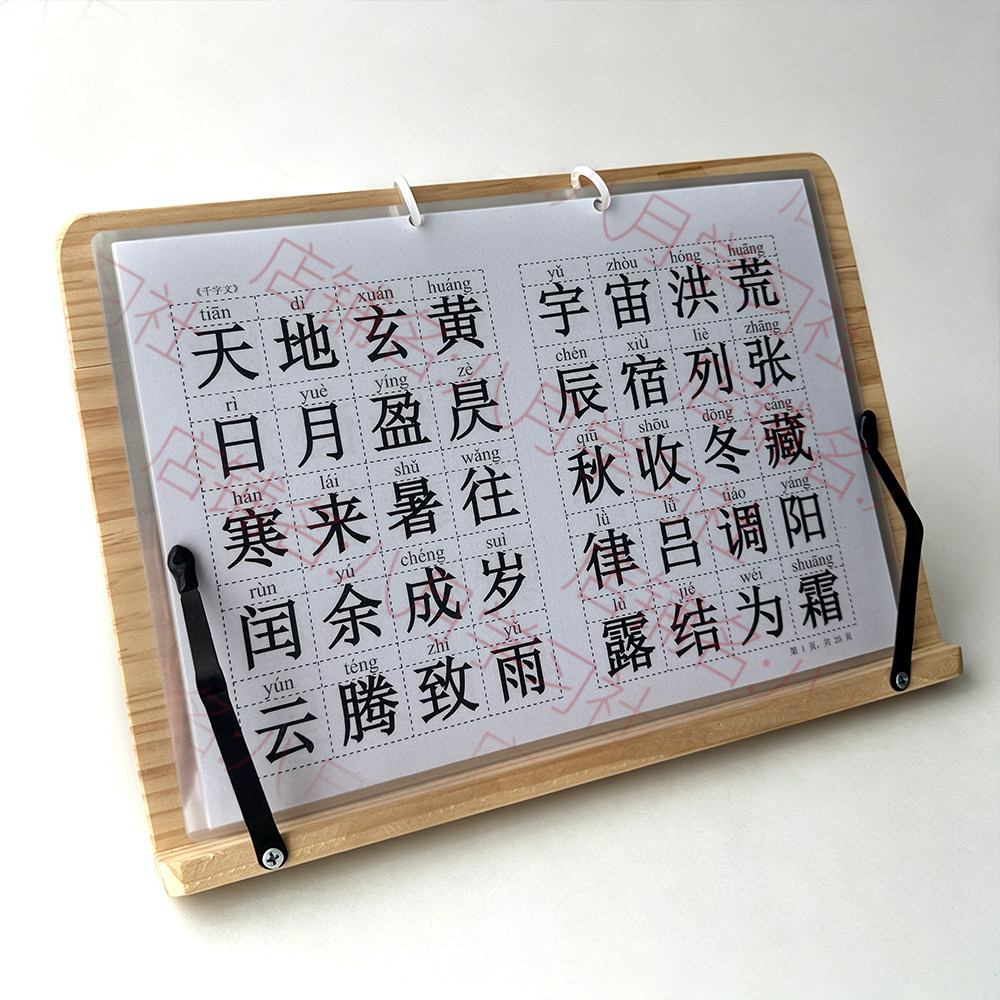 《千字文》
tiān dì xuán huáng yǔ zhòu hóng huāng
天地玄黄 宇宙洪荒
rì yuè yíng zè chén xiǔ liè zhāng
日月盈昃 辰宿列张
hán lái shǔ wǎng qiū shōu dōng cáng
寒来暑往 秋收冬藏
rùn yú chéng suì lǜ lǚ tiáo yáng
闰余成岁 律吕调阳
yún téng zhì yǔ lù jié wéi shuāng
云腾致雨 露结为霜
第 1 页，共 25 页